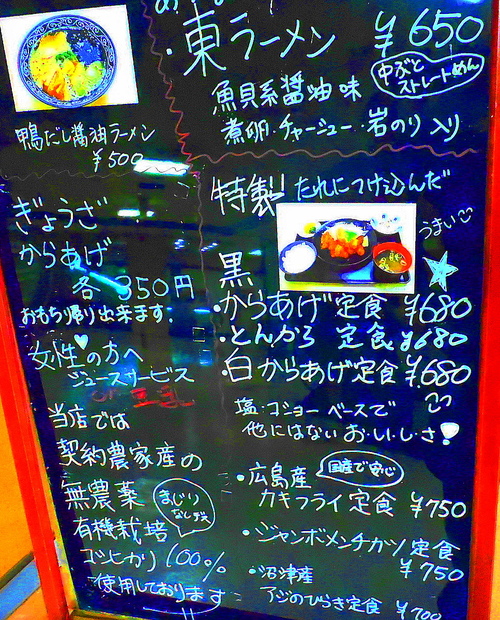 ・東ラーメン ¥650
中ぶと
ストレートめん
魚貝系醤油味
煮卵・チャーシュー・岩のり入り
鴨だし醤油ラーメン
¥500
ぎょうざ
からあげ
各350円
おもち帰り出来ます
女性♡の方へ
ジュースサービス
豆乳
当店では
契約農家産の
無農薬
有機栽培
まじり
なし
コシヒカリ100%
使用しております
特製たれにつけ込んだ
うまい
黒
・からあげ定食 ¥680
・とんから 定食 ¥680
・白からあげ定食 ¥680
塩・コショーベースで
他にはないお・い・し・さ!
・広島産
国産で安心
カキフライ定食 ¥750
・ジャンボメンチカツ定食
¥750
・沼津産
アジのひらき定食 ¥700